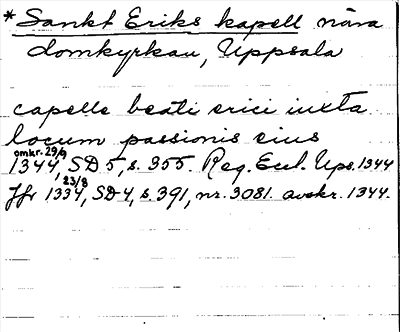 * Sankt Eriks kapell nära
domkyrkan, Uppsala
capelle beati erici iuxta
locum passionis eius
omkr. 29/9
1344, SD 5, s. 355. Reg. Eccl. Ups. 1344
23/8
Jfr 1334, SD 4, s. 391, nr. 3081. avskr. 1344.